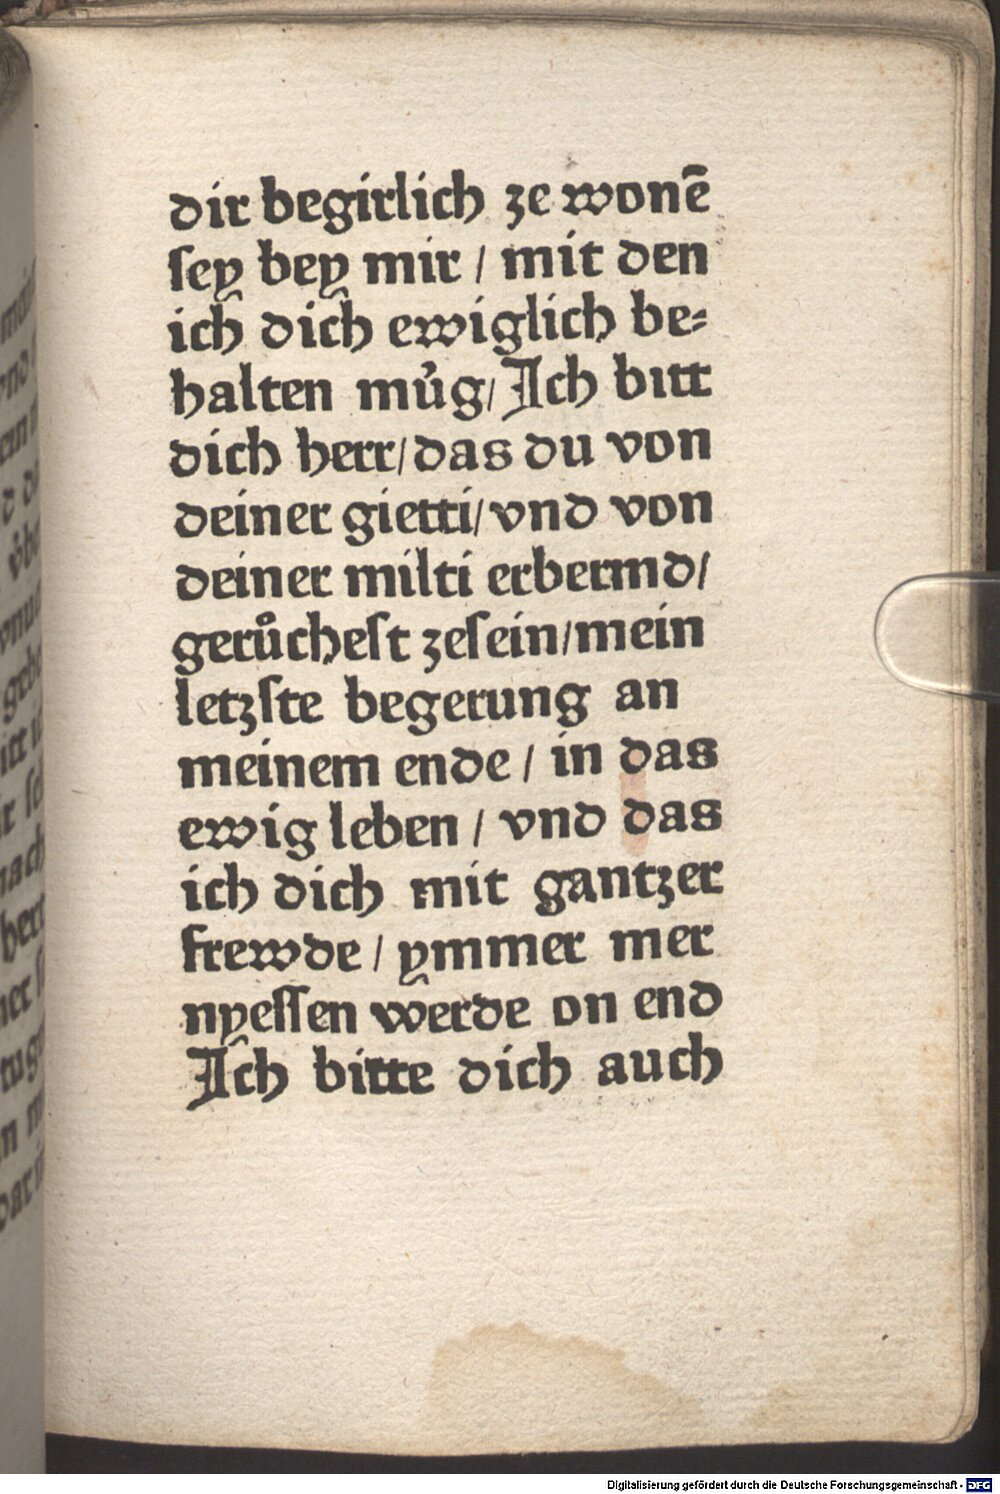 dir begirlich ze wonē
ſey bey mir / mit den
ich dich ewiglich be⸗
halten mu̓g/ Ich bitt
dich herr/das du von
deiner gietti/vnd von
deiner milti erbermd/
gerůcheſt zeſein/mein
letzſte begerung an
meinem ende / in das
ewig leben / vnd das
ich dich mit gantzer
frewde / ymmer mer
nyeſſen werde on end
Ich bitte dich auch
Digitalisierung gefördert durch die Deutsche Forschungsgemeinschaft - DFG